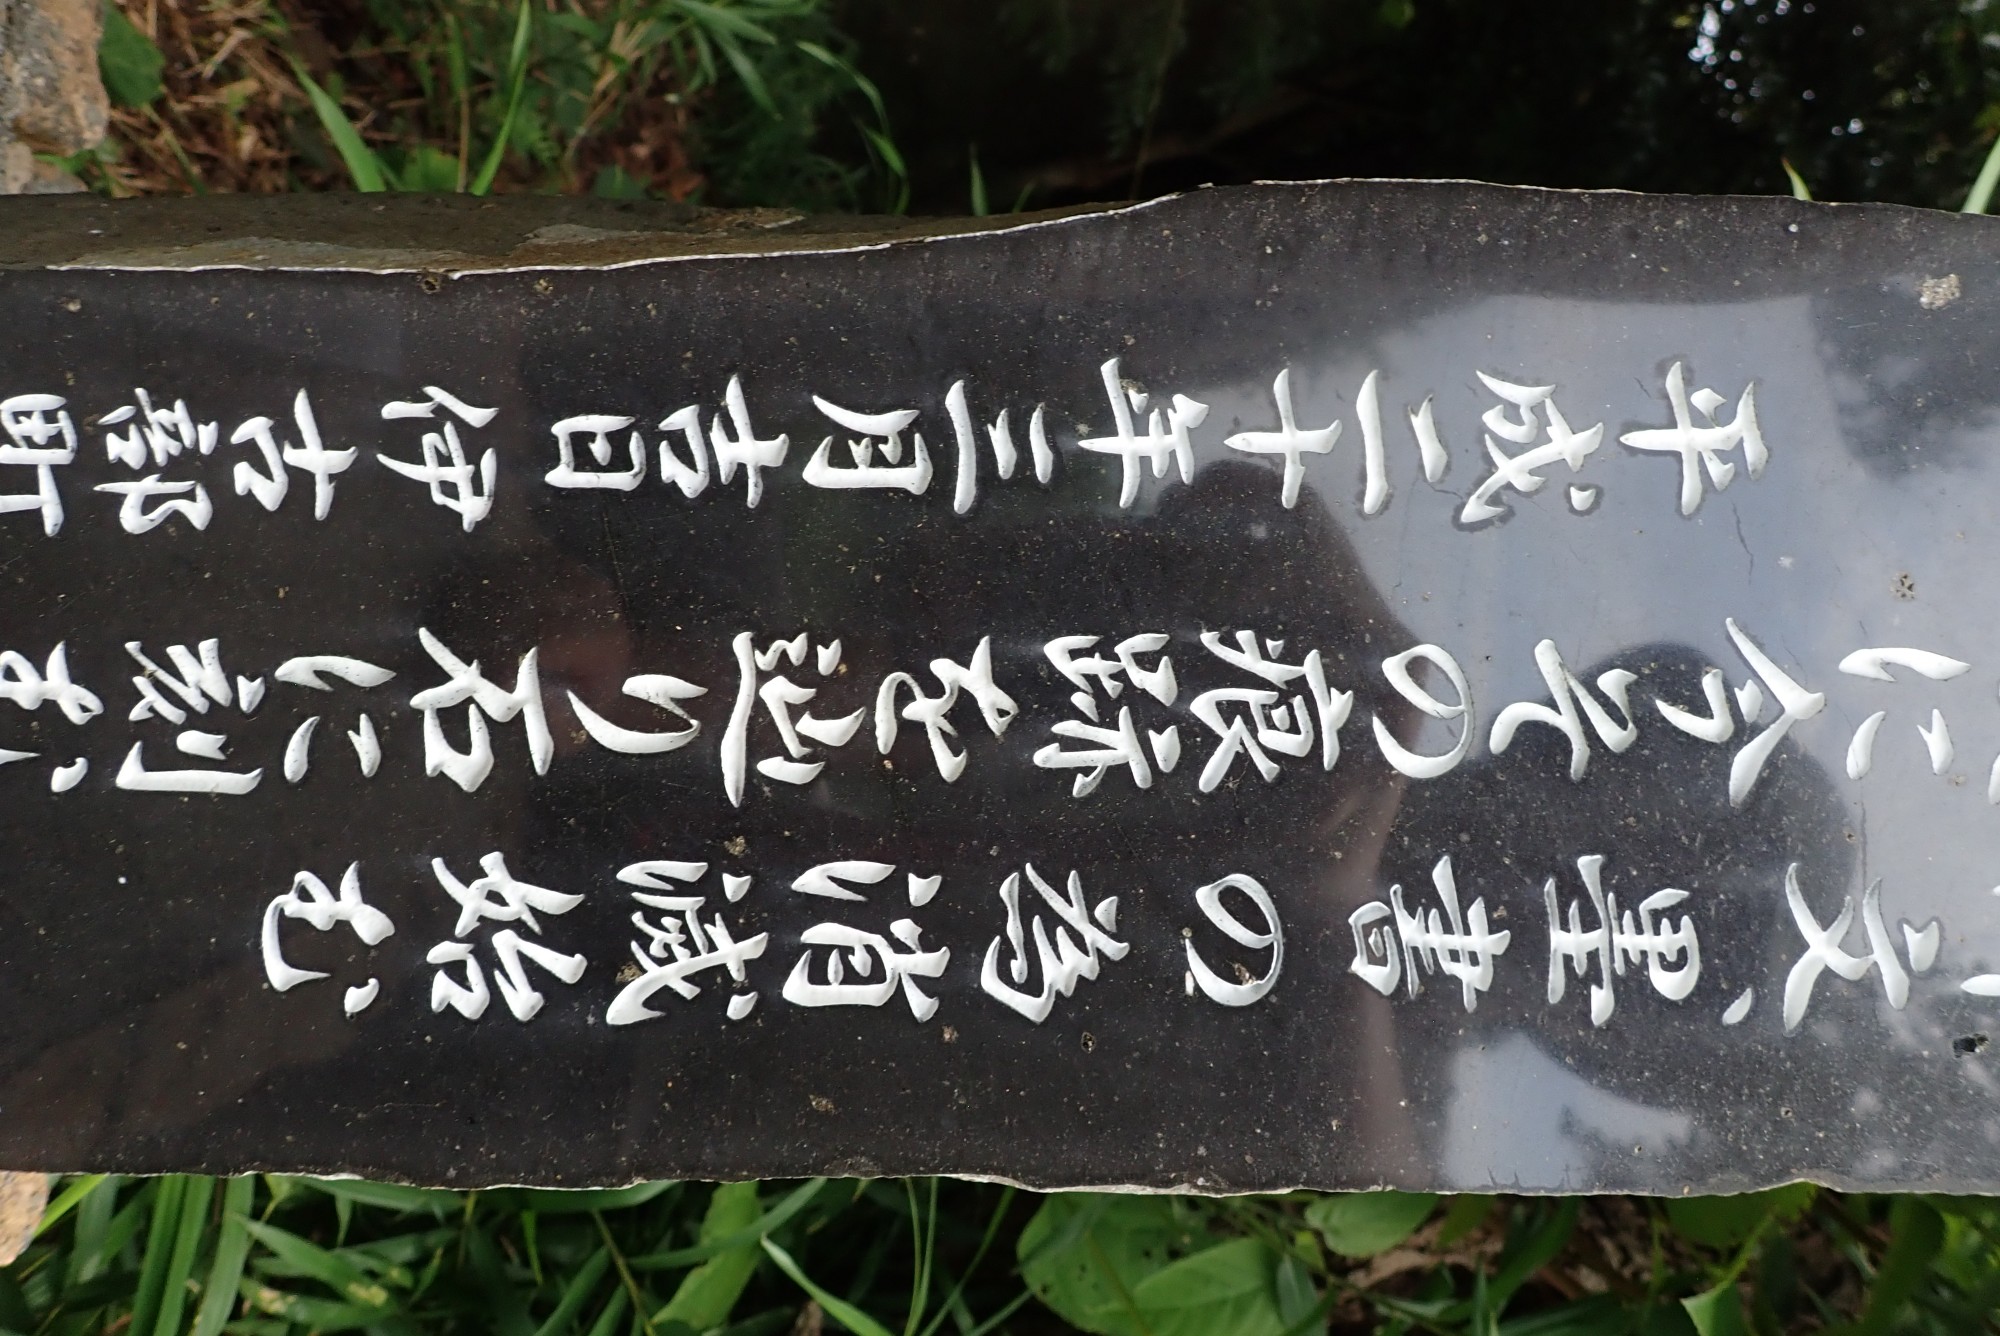 文墨書の為消滅始む
に今その痕跡を辿り石に刻む
平成二十年三月吉日伊古部町